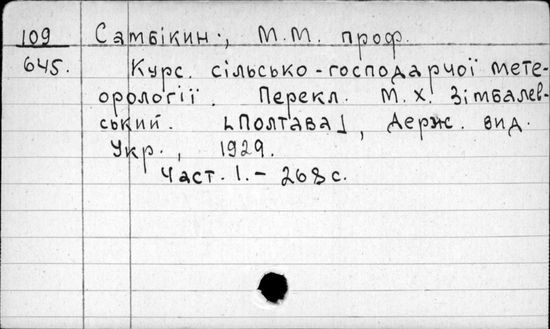 109 Самбікин., М.М. проф.
645. Курс. сільсько-господарчої мете-
орології. Перекл. М.Х. Зімбалев-
ський. [Полтава], Держ. вид.
Укр., 1929.
Част. 1.- 268 с.